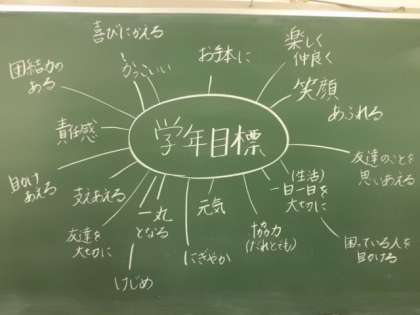 喜びにかえる
かっこいい
お手本に
楽しく
仲良く
笑顔
あふれる
団結力の
ある
責任感
学年目標
友達のことを
思いあえる
助け
あえる
支えあえる
一丸
となる
元気
(生活)
一日一日を
大切に
友達を
大切に
にぎやか
協力
(だれとでも)
困っている人を
助ける
けじめ